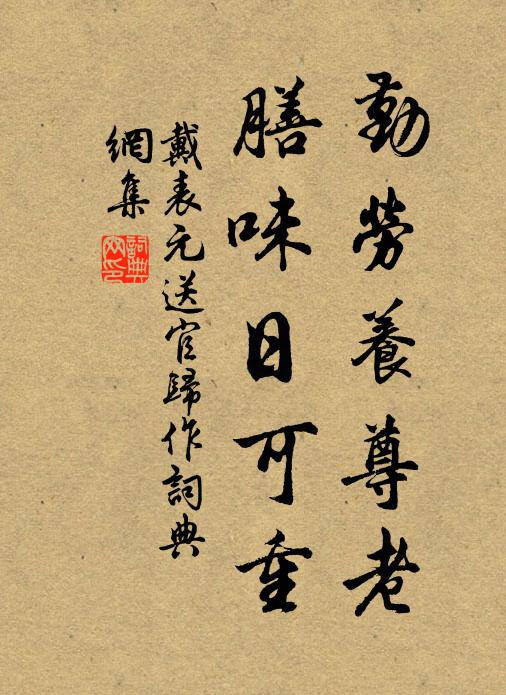 勤勞養尊老
膳味日可重
戴表元送官歸作詞典
網集
詞典
网印